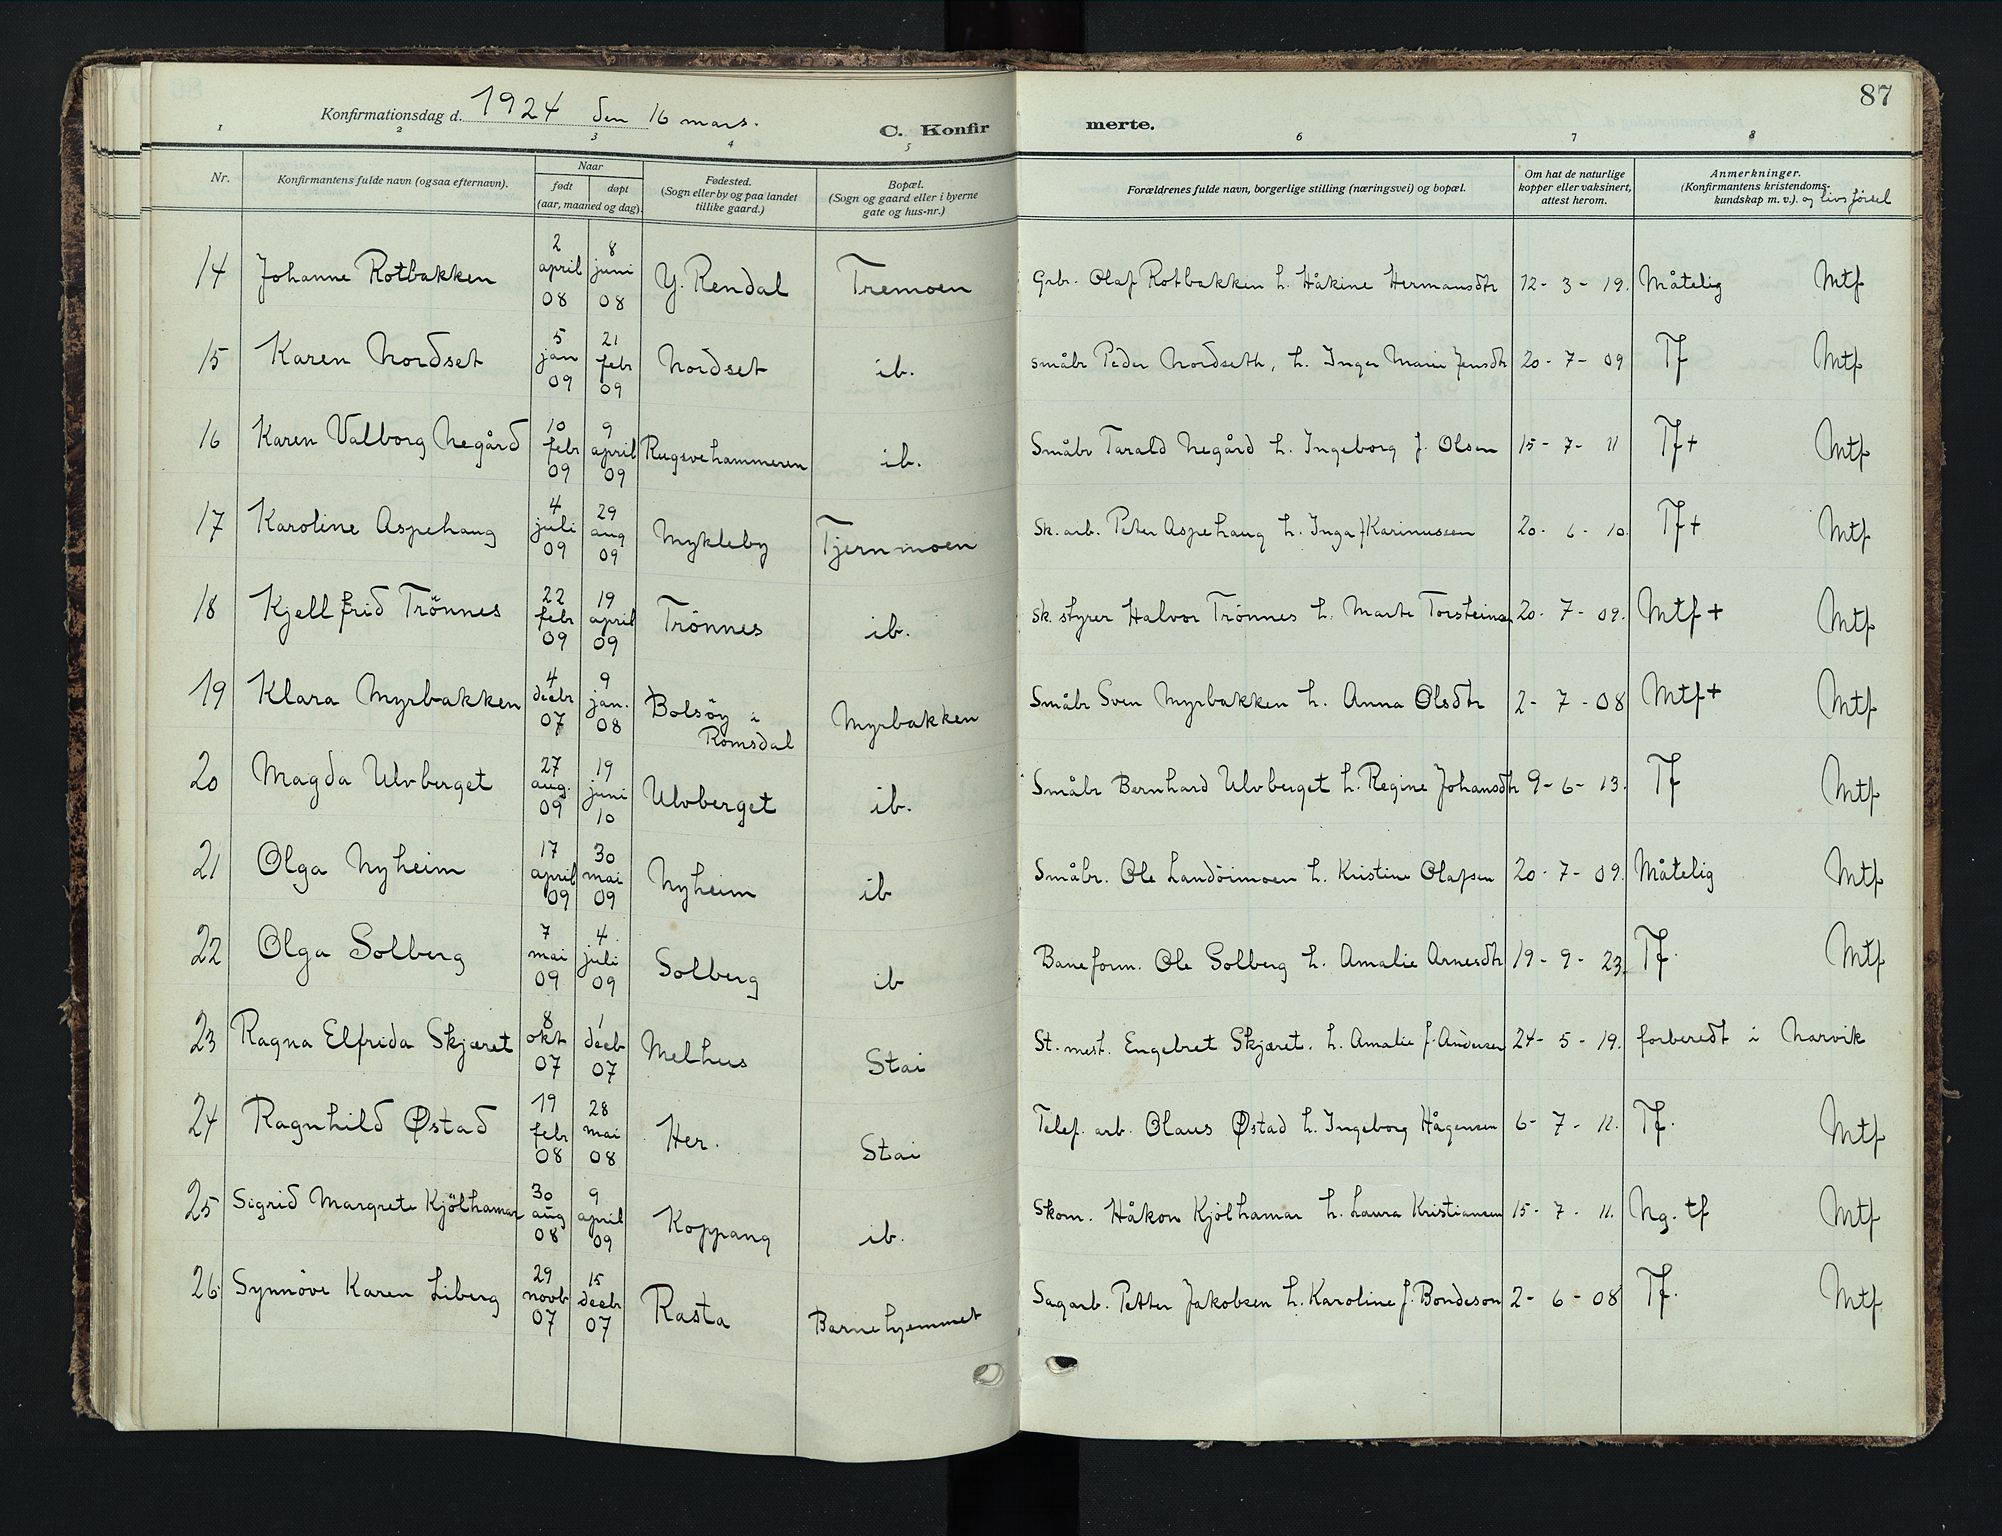 87
Konfirmationsdag d. 1924 den 16 mars.
C. Konfirmerte.
1 2 3 4 5 6 7 8
Nr.
Konfirmantens fulde navn (ogsaa efternavn).
Naar
født
døpt
(aar, maaned og dag).
Fødested.
(Sogn eller by og paa landet
tillike gaard.)
Bopæl.
(Sogn og gaard eller i byerne
gate og hus-nr.)
Forældrenes fulde navn, borgerlige stilling (næringsvei) og bopæl.
Om hat de naturlige
kopper eller vaksinert,
attest herom.
Anmerkninger.
(Konfirmantens kristendoms-
kundskap m. v.). og livsførsel
14 Johanne Rotbakken 2 april 08 8 juni 08 Y. Rendal Tremoen Grbr. Olaf Rotbakken h. Håkine Hermansdtr 12 - 3 - 19. Måtelig Mtf
15 Karen Nordset 5 jan 09 21 febr 09 Nordset ib. småbr Peder Nordseth, h. Inger Marie Jensdtr 20 - 7 - 09 Tf Mtf
16 Karen Valborg Negård 10 febr 09 9 april 09 Rugsvehammeren ib. Småbr Tarald Negård h. Ingeborg f. Olsen 15 - 7 - 11 Tf+ Mtf
17 Karoline Aspehaug 4 juli 09 29 aug 09 Mykleby Tjernmoen Sk. arb. Peter Aspehaug h. Inga f Karinussen 20 - 6 - 10. Tf+ Mtf
18 Kjellfrid Trönnes 22 febr 09 19 april 09 Trönnes ib. Sk. styrer Halvor Trønnes h. Marte Torsteins 20 - 7 - 09. Mtf+ Mtf
19 Klara Myrbakken 4 decbr 07 9 jan. 08 Bolsöy i Romsdal Myrbakken Småbr Sven Myrbakken h. Anna Olsdtr 2 - 7 - 08 Mtf+ Mtf
20 Magda Ulvberget 27 aug. 09 19 juni 10 Ulvberget ib. Småbr Bernhard Ulvberget h. Regine Johansdtr 9 - 6 - 13. Tf Mtf
21 Olga Nyheim 17 april 09 30 mai 09 Nyheim ib Småbr. Ole Landöimoen h. Kristine Olafsen 20 - 7 - 09. Måtelig Mtf
22 Olga Solberg 7 mai 09 4 juli 09 Solberg ib Baneform. Ole Solberg h. Amalie Arnesdtr 19 - 9 - 23. Tf. Mtf
23 Ragna Elfrida Skjæret 8 okt 07 1 decb 07 Melhus Stai St. mest. Engebret Skjæret. h. Amalie f. Andersen 24 - 5 - 19. forberedt i Narvik
24 Ragnhild Østad 19 febr 08 28 mai 08 Her. Stai Telef. arb. Olaus Østad h. Ingeborg Hågensen 6 - 7 - 11. Tf. Mtf
25 Sigrid Margrete Kjölhamar 30 aug 08 9 april 09 Koppang ib. Skom. Håkon Kjölhamar h. Laura Kristiansen 15 - 7 - 11. Ng. tf Mtf
26 Synnöve Karen Liberg 29 novb 07 15 decbr 07 Rasta Barnehjemmet Sagarb. Petter Jakobsen h. Karoline f. Bondeson 2 - 6 - 08 Tf. Mtf